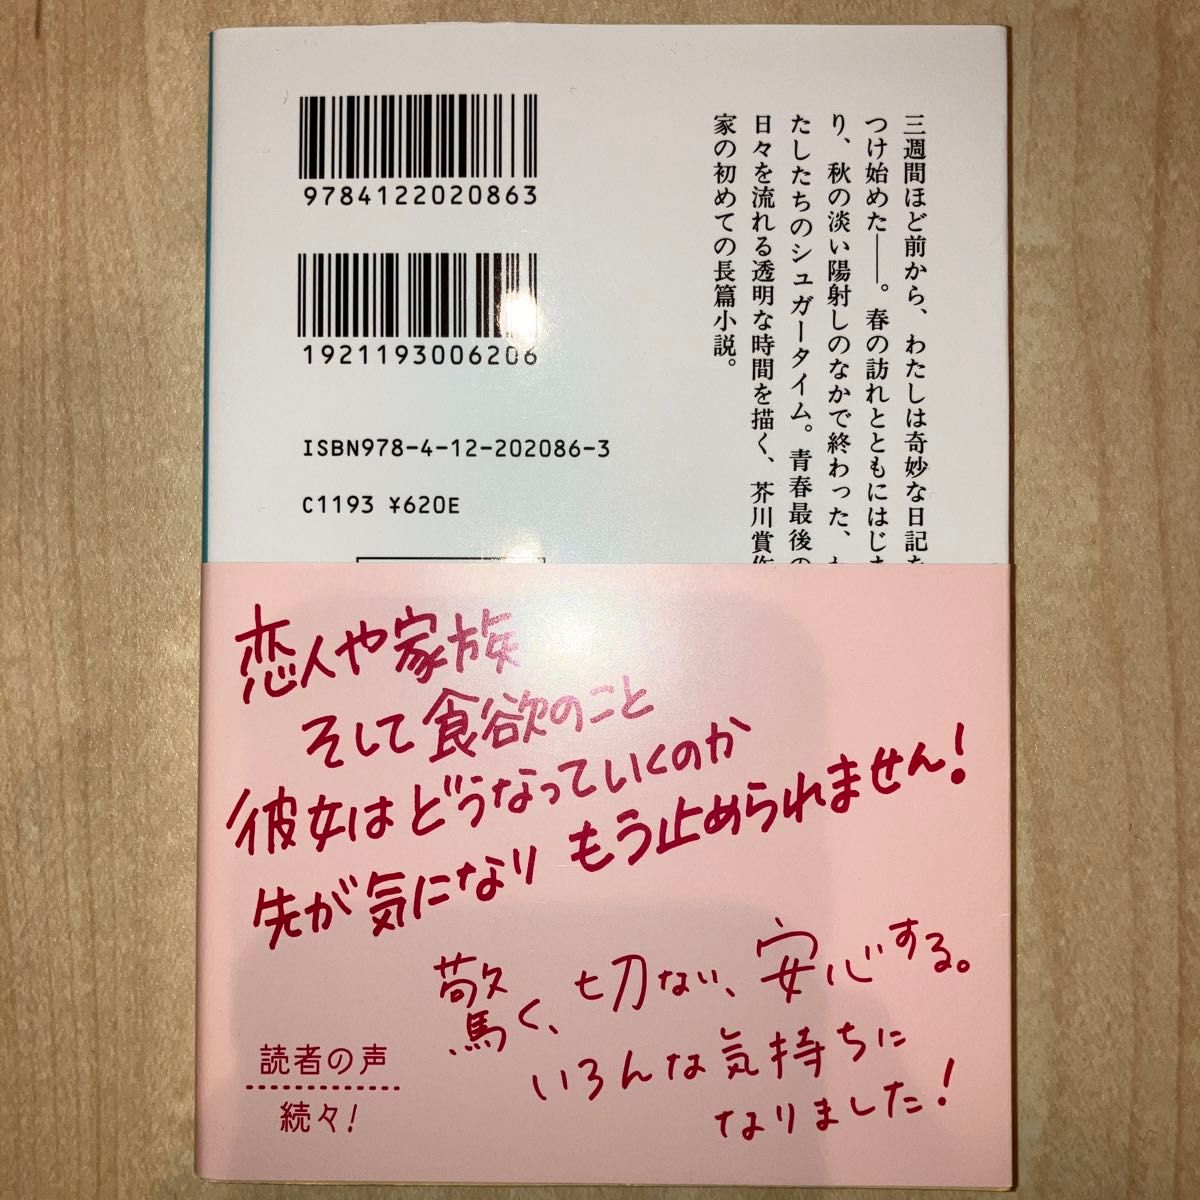 三週間ほど前から、わたしは奇妙な日記を
つけ始めた――。春の訪れとともにはじま
り、秋の淡い陽射しのなかで終わった、わ
たしたちのシュガータイム。青春最後の
日々を流れる透明な時間を描く、芥川賞作
家の初めての長篇小説。
9784122020863
1921193006206
ISBN978-4-12-202086-3
C1193 ¥620E
恋人や家族
そして食欲のこと
彼女はどうなっていくのか
先が気になり もう止められません!
驚く、切ない、安心する。
いろんな気持ちに
なりました!
読者の声
続々!